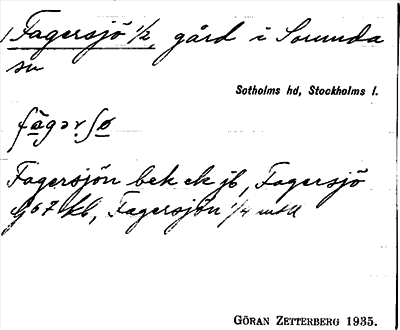 1 Fagersjö 1/2, gård i Sorunda
sn
Sotholms hd, Stockholms l.
fāgərʃø
Fagersjön bek ek jb, Fagersjö
G 67 kb, Fagersjön 1/4 mtl
GÖRAN ZETTERBERG 1935.